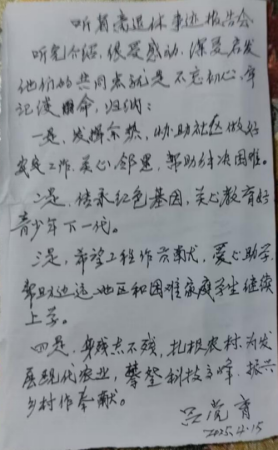 听省离退休事迹报告会
听完介绍,很受感动,深受启发
他们的共同点就是不忘初心,牢
记使命,归纳:
一是,发挥余热,协助社区做好
安定工作,关心邻里,帮助解决困难。
二是,传承红色基因,关心教育好
青少年下一代。
三是,希望工程作贡献,爱心助学,
帮助边远地区和困难家庭学生继续
上学。
四是,身残志不残,扎根农村,为发
展现代农业,攀登科技高峰,振兴
乡村作奉献。
2025.4.15